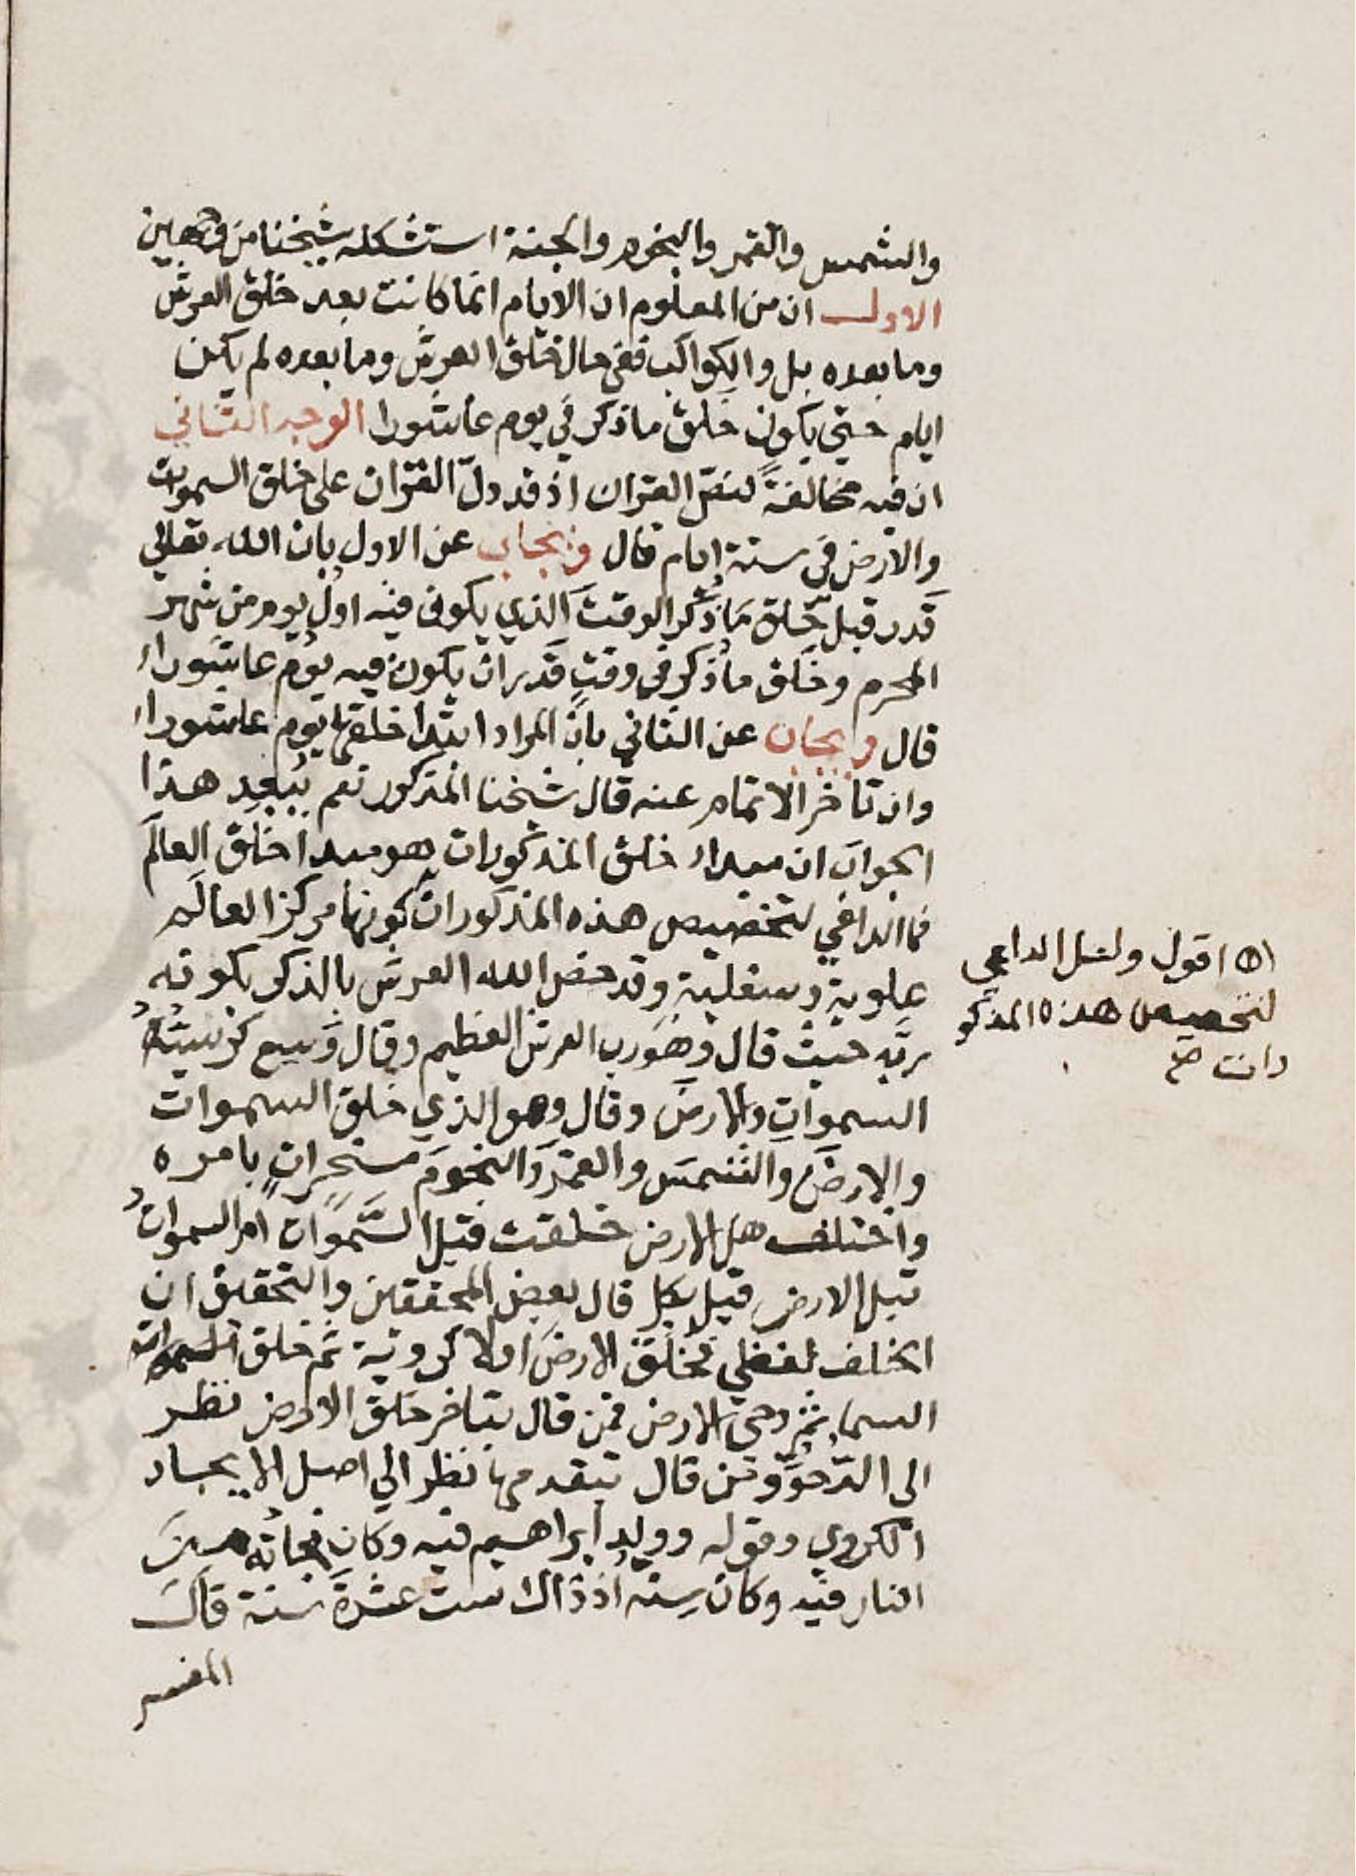 والشمس والقمر والنجوم والجنة استشكله شيخنا من وجهين
الاول ان من المعلوم ان الايام انما كانت بعد خلق العرش
وما بعده بل والكواكب ففي حال خلق العرش وما بعده لم يكن
ايام حتي يكون خلق ما ذكر في يوم عاشورا الوجه الثاني
ان فيه مخالفةً لنص القران اذ قد دلّ القران علي خلق السموات
والارض في ستة ايام قال ويجاب عن الاول بان الله تعالي
قدر قبل خلق ما ذكر الوقت الذي يكون فيه اول يوم من شهر
المحرم وخلق ما ذكر في وقتٍ قدر ان يكون فيه يوم عاشوراء
قال ويجاب عن الثاني بانّ المراد ابتدا خلقها يوم عاشوراء
وان تاخر الاتمام عنه قال شيخنا المذكور نعم يبعد هذا
الجواب ان مبداء خلق المذكورات هو مبدا خلق العالم
فما الداعي لتخصيص هذه المذكورات كونها مركز العالم
علوية وسفلية وقد خص الله العرش بالذكر بكونه
ربّه حيث قال وهو رب العرش العظيم وقال وسع كرسيّهُ
السمواتِ والارضَ وقال وهو الذي خلق السموات
والارضَ والشمسَ والقمرَ والنجومَ مسخراتٍ بامره
واختلف هل الارض خلقت قبل السموات ام السموات
قبل الارض قيل بكل قال بعض المحققين والتحقيق ان
الخلف لفظي فخلق الارض اولا كروية ثم خلق السموات
السما ثم دحي الارض فمن قال بتاخر خلق الارض نظر
الى الدّحوّ ومن قال بتقدمها نظر الي اصل الايجاد
الكروي وقوله وولد ابراهيم فيه وكان نجاته من
النار فيه وكان سنه اذ ذاك ست عشرة سنة قال
المفسر
اقول ولعل الداعي
لتخصيص هذه المذكو
رات صح